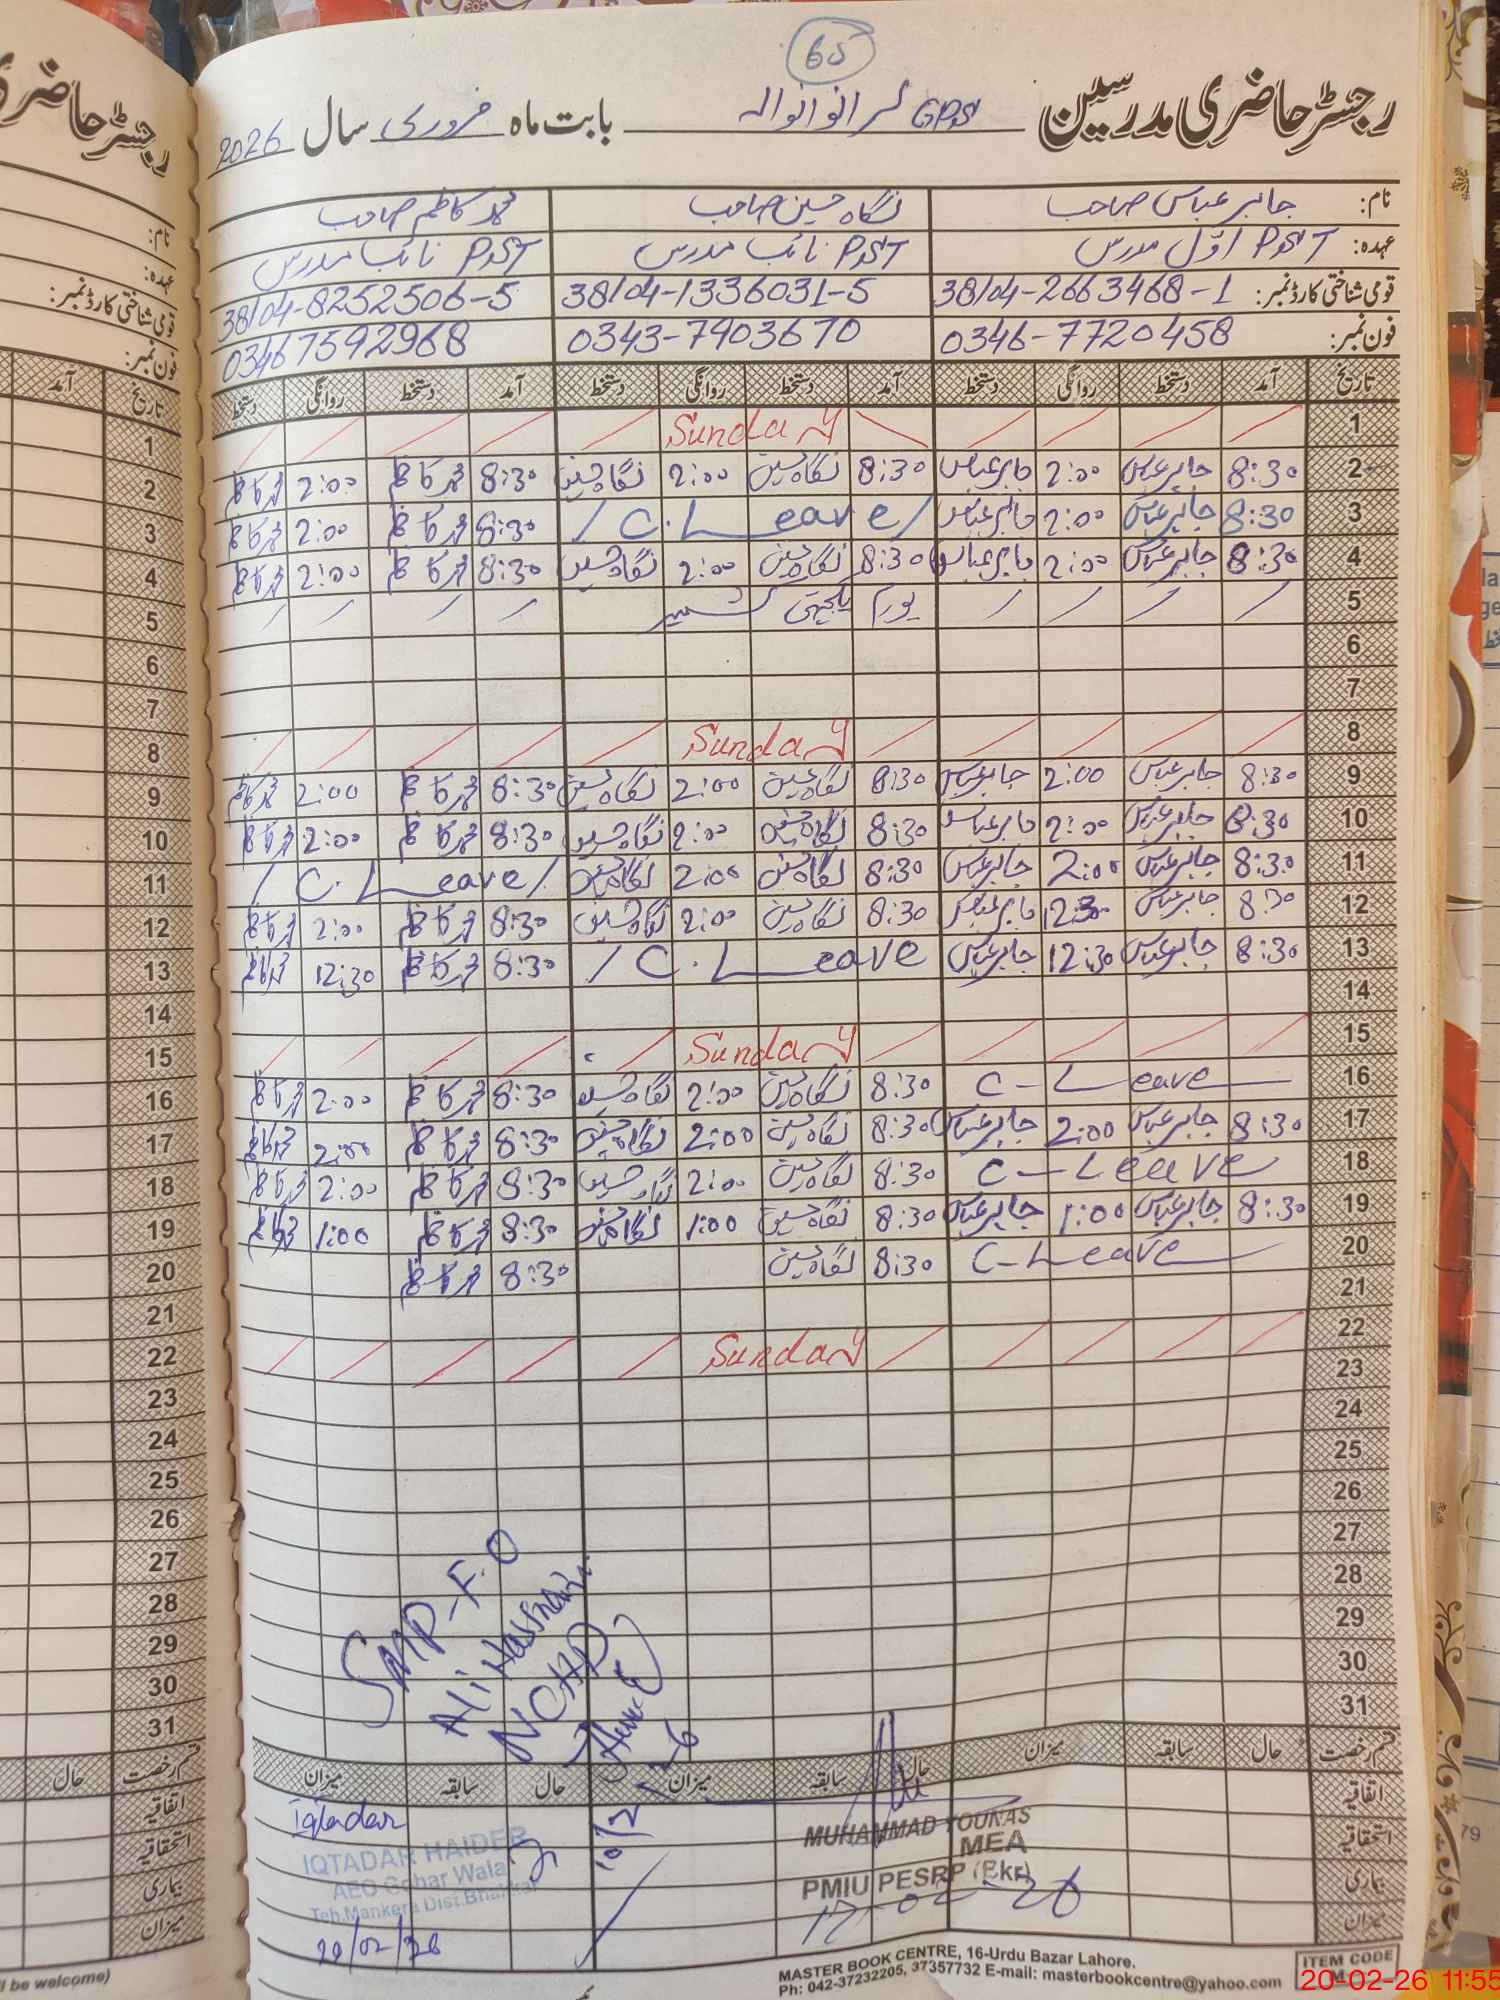 65
رجسٹر حاضری مدرسین GPS بابت ماہ فروری سال 2026
نام: جابر عباس صاحب نگاہ حسین صاحب محمد کاظم صاحب
عہدہ: PST اوّل مدرس PST نائب مدرس PST نائب مدرس
قومی شناختی کارڈ نمبر: 38104-2663468-1 38104-1336031-5 38104-8252506-5
فون نمبر: 0346-7720458 0343-7903670 03467592968
تاریخ آمد دستخط روانگی دستخط آمد دستخط روانگی دستخط آمد دستخط روانگی دستخط
1 Sunday
2 8:30 جابر عباس 2:00 جابر عباس 8:30 نگاہ حسین 2:00 نگاہ حسین 8:30 محمد کاظم 2:00 محمد کاظم
3 8:30 جابر عباس 2:00 جابر عباس / C. Leave / 8:30 محمد کاظم 2:00 محمد کاظم
4 8:30 جابر عباس 2:00 جابر عباس 8:30 نگاہ حسین 2:00 نگاہ حسین 8:30 محمد کاظم 2:00 محمد کاظم
5 یوم یکجہتی کشمیر
6
7
8 Sunday
9 8:30 جابر عباس 2:00 جابر عباس 8:30 نگاہ حسین 2:00 نگاہ حسین 8:30 محمد کاظم 2:00 محمد کاظم
10 8:30 جابر عباس 2:00 جابر عباس 8:30 نگاہ حسین 2:00 نگاہ حسین 8:30 محمد کاظم 2:00 محمد کاظم
11 8:30 جابر عباس 2:00 جابر عباس 8:30 نگاہ حسین 2:00 نگاہ حسین / C. Leave /
12 8:30 جابر عباس 12:30 جابر عباس 8:30 نگاہ حسین 2:00 نگاہ حسین 8:30 محمد کاظم 2:00 محمد کاظم
13 8:30 جابر عباس 12:30 جابر عباس / C. Leave 8:30 محمد کاظم 12:30 محمد کاظم
14
15 Sunday
16 C-Leave 8:30 نگاہ حسین 2:00 نگاہ حسین 8:30 محمد کاظم 2:00 محمد کاظم
17 8:30 جابر عباس 2:00 جابر عباس 8:30 نگاہ حسین 2:00 نگاہ حسین 8:30 محمد کاظم 2:00 محمد کاظم
18 C-Leave 8:30 نگاہ حسین 2:00 نگاہ حسین 8:30 محمد کاظم 2:00 محمد کاظم
19 8:30 جابر عباس 1:00 جابر عباس 8:30 نگاہ حسین 1:00 نگاہ حسین 8:30 محمد کاظم 1:00 محمد کاظم
20 C-Leave 8:30 نگاہ حسین 8:30 محمد کاظم
21
22 Sunday
23
24
25
26
27
28
29
30
31
SMP-F.O
Ali Hassnain
NCHD
قسم رخصت حال سابقہ میزان حال سابقہ میزان حال سابقہ میزان
اتفاقیہ
استحقاقیہ
بیماری
میزان
Iqtadar
IQTADAR HAIDER
AEO Gohar Wala
Teh.Mankera Dist.Bhakkar
20/02/26
MUHAMMAD YOUNAS
MEA
PMIU PESRP (Bkr)
17-02-26
MASTER BOOK CENTRE, 16-Urdu Bazar Lahore.
Ph: 042-37232205, 37357732 E-mail: masterbookcentre@yahoo.com
ITEM CODE
20-02-26 11:55
رجسٹر حاضری
نام:
عہدہ:
قومی شناختی کارڈ نمبر:
فون نمبر:
تاریخ آمد
1
2
3
4
5
6
7
8
9
10
11
12
13
14
15
16
17
18
19
20
21
22
23
24
25
26
27
28
29
30
31
قسم رخصت حال
اتفاقیہ
استحقاقیہ
بیماری
میزان
ll be welcome)